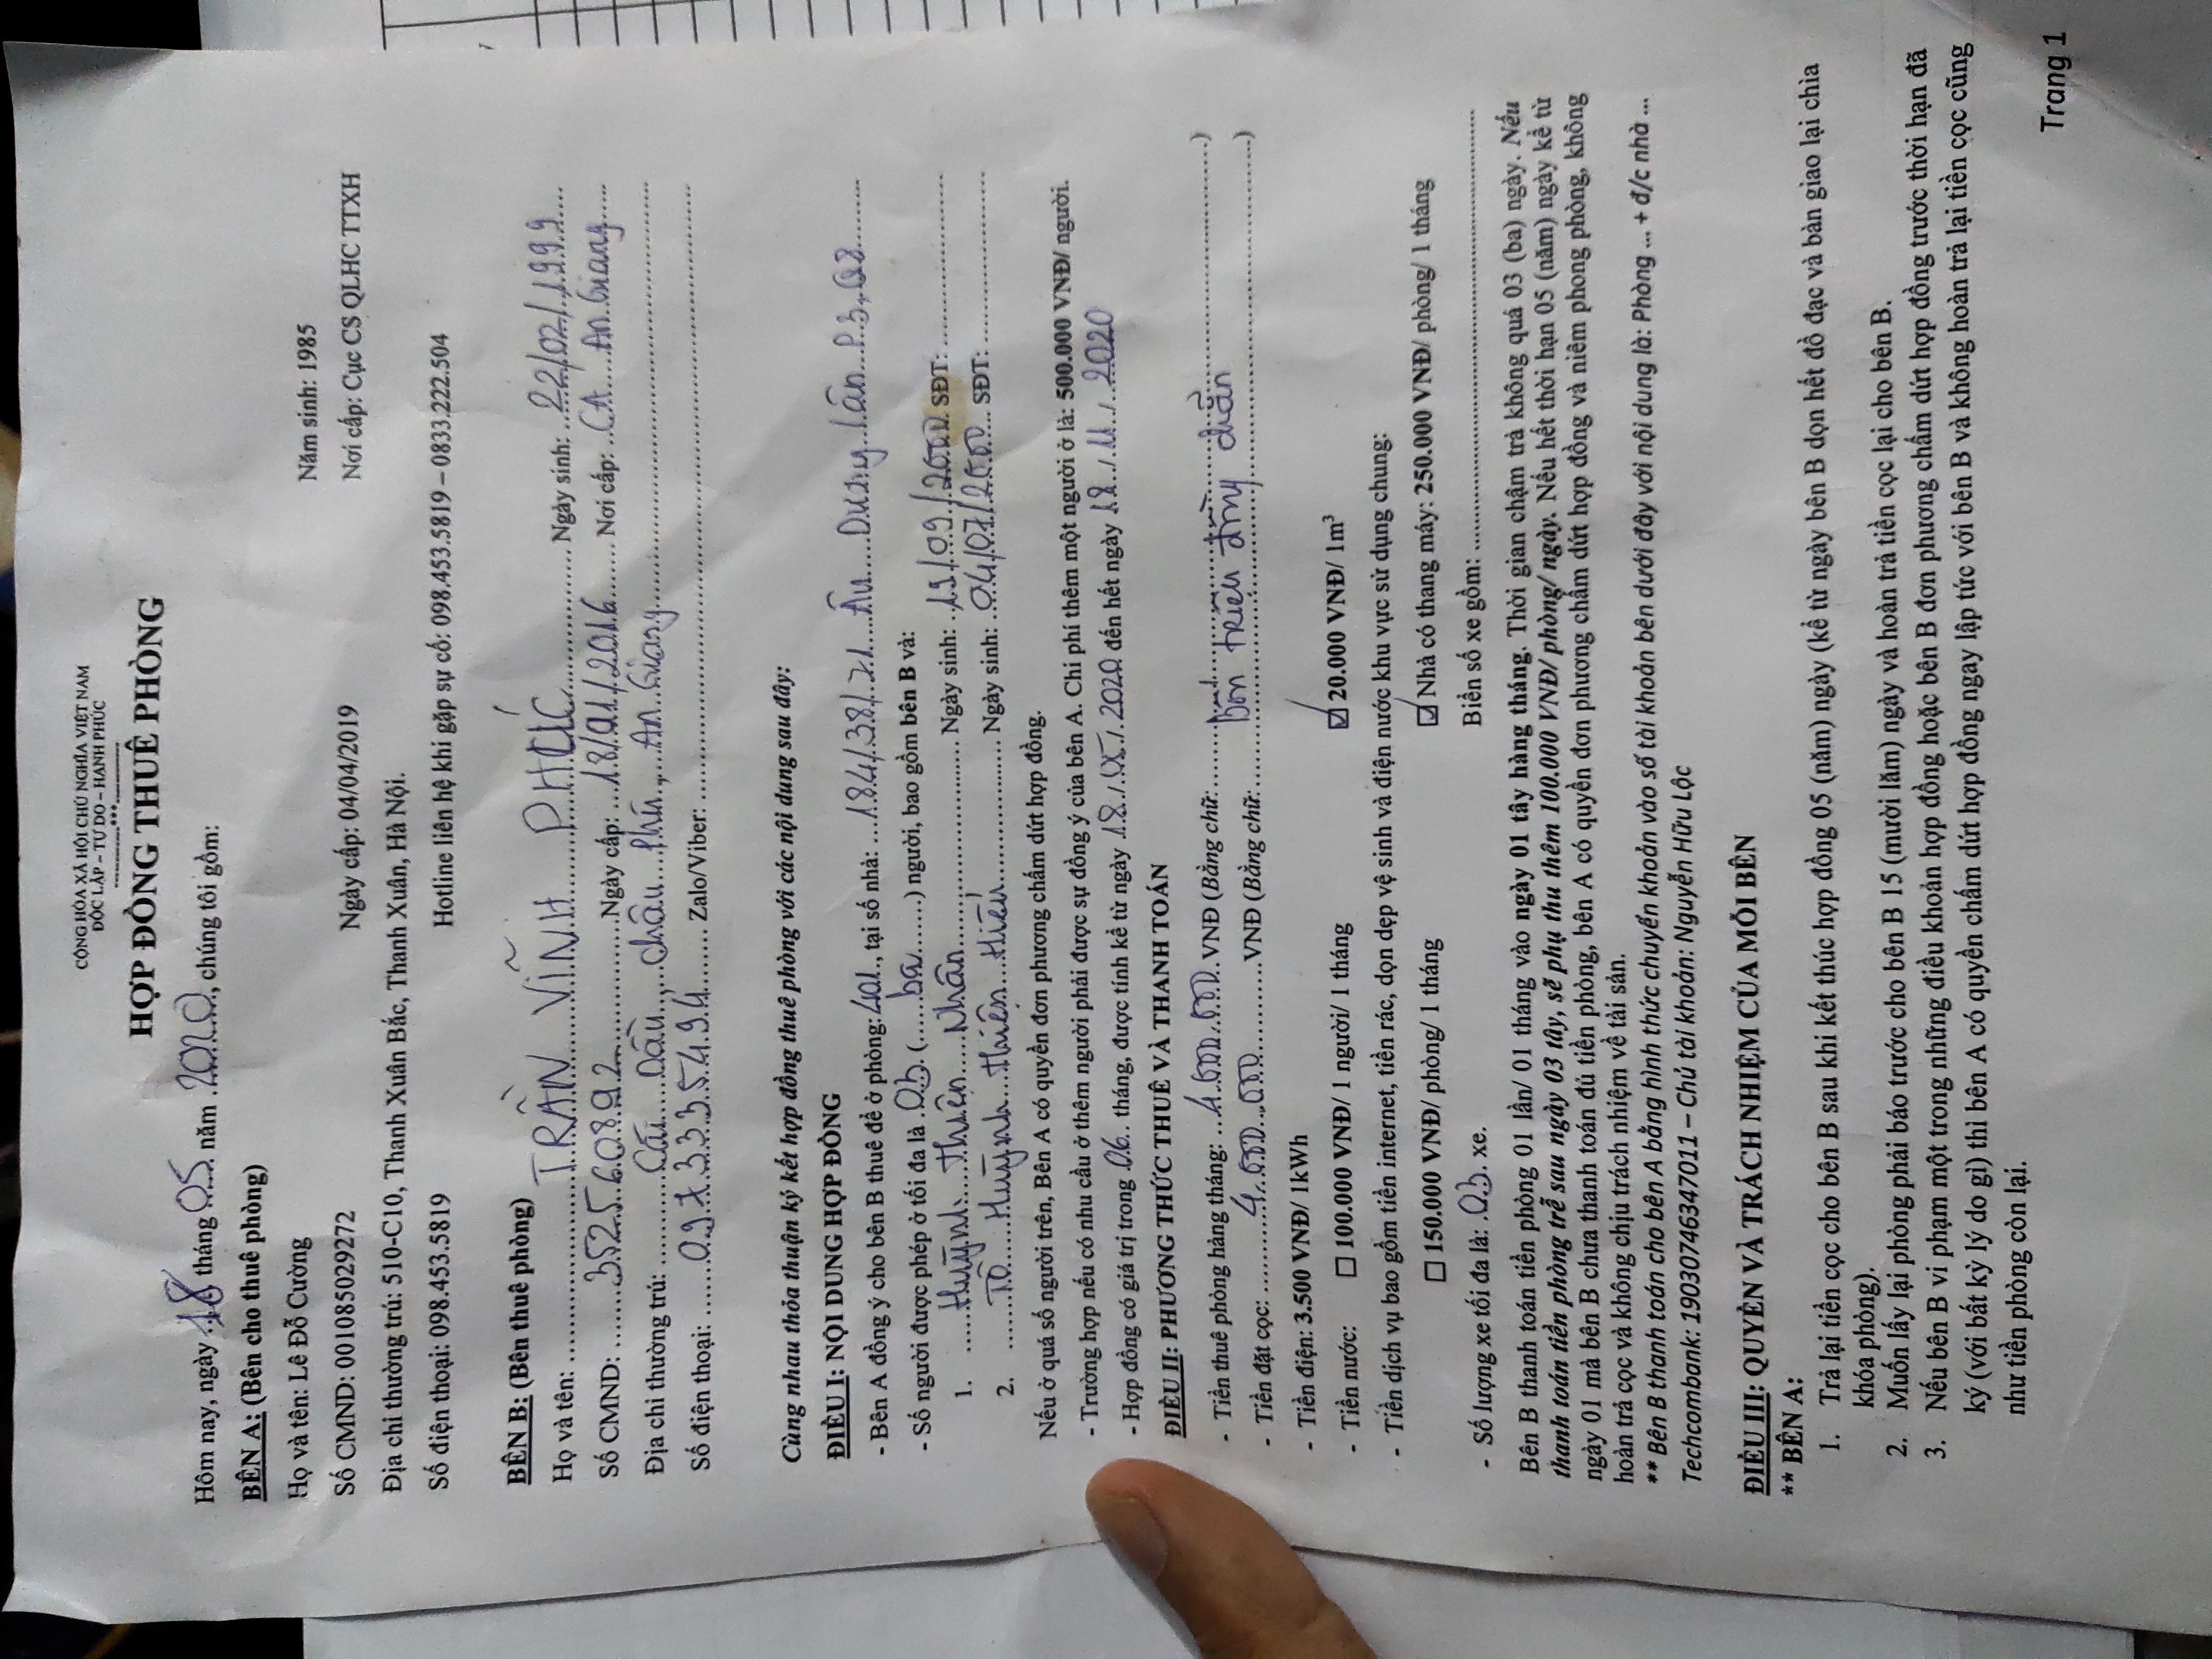 CỘNG HÒA XÃ HỘI CHỦ NGHĨA VIỆT NAM
ĐỘC LẬP – TỰ DO – HẠNH PHÚC
----------***----------
HỢP ĐỒNG THUÊ PHÒNG
Hôm nay, ngày 18 tháng 05 năm 2020, chúng tôi gồm:
BÊN A: (Bên cho thuê phòng)
Họ và tên: Lê Đỗ Cường Năm sinh: 1985
Số CMND: 001085029272 Ngày cấp: 04/04/2019 Nơi cấp: Cục CS QLHC TTXH
Địa chỉ thường trú: 510-C10, Thanh Xuân Bắc, Thanh Xuân, Hà Nội.
Số điện thoại: 098.453.5819 Hotline liên hệ khi gặp sự cố: 098.453.5819 – 0833.222.504
BÊN B: (Bên thuê phòng)
Họ và tên: TRẦN VĨNH PHÚC Ngày sinh: 22/02/1999
Số CMND: 352560892 Ngày cấp: 18/01/2016 Nơi cấp: CA An Giang
Địa chỉ thường trú: Cái Dầu, Châu Phú, An Giang
Số điện thoại: 0973335494 Zalo/Viber:
Cùng nhau thỏa thuận ký kết hợp đồng thuê phòng với các nội dung sau đây:
ĐIỀU I: NỘI DUNG HỢP ĐỒNG
- Bên A đồng ý cho bên B thuê để ở phòng: 401, tại số nhà: 184/38/21 Âu Dương Lân P.3, Q8
- Số người được phép ở tối đa là 03 (ba) người, bao gồm bên B và:
1. Huỳnh Thiện Nhân Ngày sinh: 19/09/2000 SĐT:
2. Tô Huỳnh Thiện Hiếu Ngày sinh: 04/07/2000 SĐT:
Nếu ở quá số người trên, Bên A có quyền đơn phương chấm dứt hợp đồng.
- Trường hợp nếu có nhu cầu ở thêm người phải được sự đồng ý của bên A. Chi phí thêm một người ở là: 500.000 VNĐ/ người.
- Hợp đồng có giá trị trong 06 tháng, được tính kể từ ngày 18/05/2020 đến hết ngày 18/11/2020
ĐIỀU II: PHƯƠNG THỨC THUÊ VÀ THANH TOÁN
- Tiền thuê phòng hàng tháng: 4.000.000 VNĐ (Bằng chữ: )
- Tiền đặt cọc: 4.000.000 VNĐ (Bằng chữ: bốn triệu đồng chẵn )
- Tiền điện: 3.500 VNĐ/ 1kWh
- Tiền nước: ☐ 100.000 VNĐ/ 1 người/ 1 tháng ☑ 20.000 VNĐ/ 1m³
- Tiền dịch vụ bao gồm tiền internet, tiền rác, dọn dẹp vệ sinh và điện nước khu vực sử dụng chung:
☐ 150.000 VNĐ/ phòng/ 1 tháng ☑ Nhà có thang máy: 250.000 VNĐ/ phòng/ 1 tháng
- Số lượng xe tối đa là: 03 xe. Biển số xe gồm:
Bên B thanh toán tiền phòng 01 lần/ 01 tháng vào ngày 01 tây hàng tháng. Thời gian chậm trả không quá 03 (ba) ngày. Nếu
thanh toán tiền phòng trễ sau ngày 03 tây, sẽ phụ thu thêm 100.000 VNĐ/ phòng/ ngày. Nếu hết thời hạn 05 (năm) ngày kể từ
ngày 01 mà bên B chưa thanh toán đủ tiền phòng, bên A có quyền đơn phương chấm dứt hợp đồng và niêm phong phòng, không
hoàn trả cọc và không chịu trách nhiệm về tài sản.
** Bên B thanh toán cho bên A bằng hình thức chuyển khoản vào số tài khoản bên dưới đây với nội dung là: Phòng ... + đ/c nhà ...
Techcombank: 19030746347011 – Chủ tài khoản: Nguyễn Hữu Lộc
ĐIỀU III: QUYỀN VÀ TRÁCH NHIỆM CỦA MỖI BÊN
** BÊN A:
1. Trả lại tiền cọc cho bên B sau khi kết thúc hợp đồng 05 (năm) ngày (kể từ ngày bên B dọn hết đồ đạc và bàn giao lại chìa
khóa phòng).
2. Muốn lấy lại phòng phải báo trước cho bên B 15 (mười lăm) ngày và hoàn trả tiền cọc lại cho bên B.
3. Nếu bên B vi phạm một trong những điều khoản hợp đồng hoặc bên B đơn phương chấm dứt hợp đồng trước thời hạn đã
ký (với bất kỳ lý do gì) thì bên A có quyền chấm dứt hợp đồng ngay lập tức với bên B và không hoàn trả lại tiền cọc cũng
như tiền phòng còn lại.
Trang 1